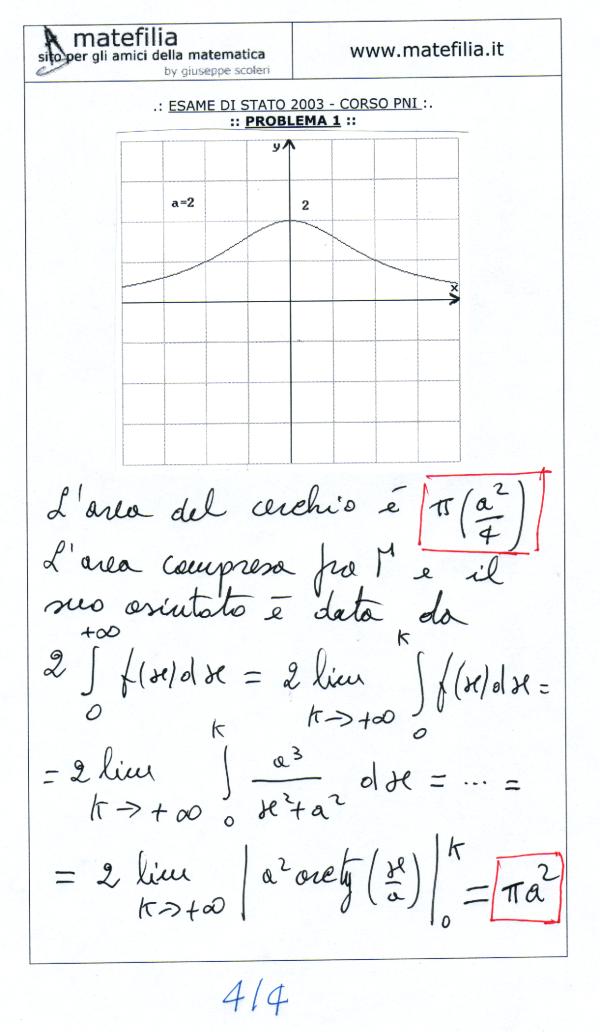 matefilia
sito per gli amici della matematica
by giuseppe scoleri
www.matefilia.it
.: ESAME DI STATO 2003 - CORSO PNI :.
:: PROBLEMA 1 ::
y
a=2
2
x
L'area del cerchio è π(a²/4)
L'area compresa fra Γ e il
suo asintoto è data da
2 ∫₀^{+∞} f(x)dx = 2 lim_{K→+∞} ∫₀^K f(x)dx =
= 2 lim_{K→+∞} ∫₀^K a³/(x²+a²) dx = ... =
= 2 lim_{K→+∞} |a² arctg(x/a)|₀^K = πa²
4/4